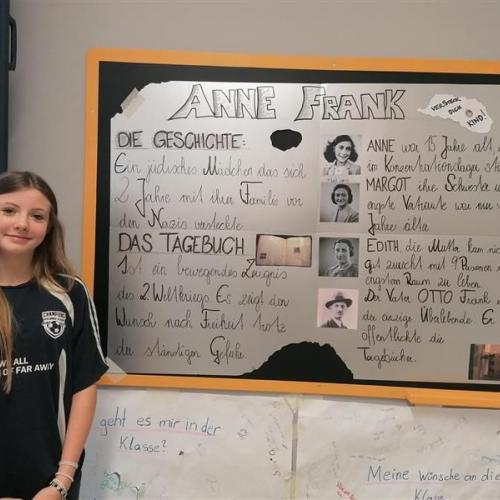 ANNE FRANK
VERSTECK
DICH
KIND!
DIE GESCHICHTE:
Ein jüdisches Mädchen das sich
2 Jahre mit ihrer Familie vor
den Nazis versteckte.
DAS TAGEBUCH
Ist ein bewegendes Zeugnis
des 2. Weltkriegs Es zeigt den
Wunsch nach Freiheit trotz
der ständigen Gefahr.
ANNE war 15 Jahre alt,
im Konzentrationslager
MARGOT ihre Schwester
engste Vertraute war nur
Jahre älter.
EDITH, die Mutter kam nicht
gut zurecht mit 9 Personen
engstem Raum zu leben.
Der Vater OTTO Frank
der einzige Übalebende Er
öffentlichte die
Tagebücher.
CHAMPIONS
ALL
OF FAR AWAY
geht es mir in der
Klasse?
Meine Wünsche an die
Klasse